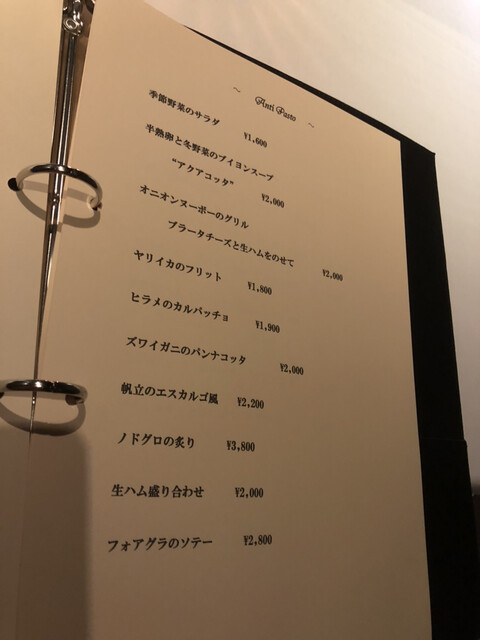 ~ Anti Pasto ~
季節野菜のサラダ ¥1,600
半熟卵と冬野菜のブイヨンスープ
"アクアコッタ" ¥2,000
オニオンヌーボーのグリル
ブラータチーズと生ハムをのせて ¥2,000
ヤリイカのフリット ¥1,800
ヒラメのカルパッチョ ¥1,900
ズワイガニのパンナコッタ ¥2,000
帆立のエスカルゴ風 ¥2,200
ノドグロの炙り ¥3,800
生ハム盛り合わせ ¥2,000
フォアグラのソテー ¥2,800